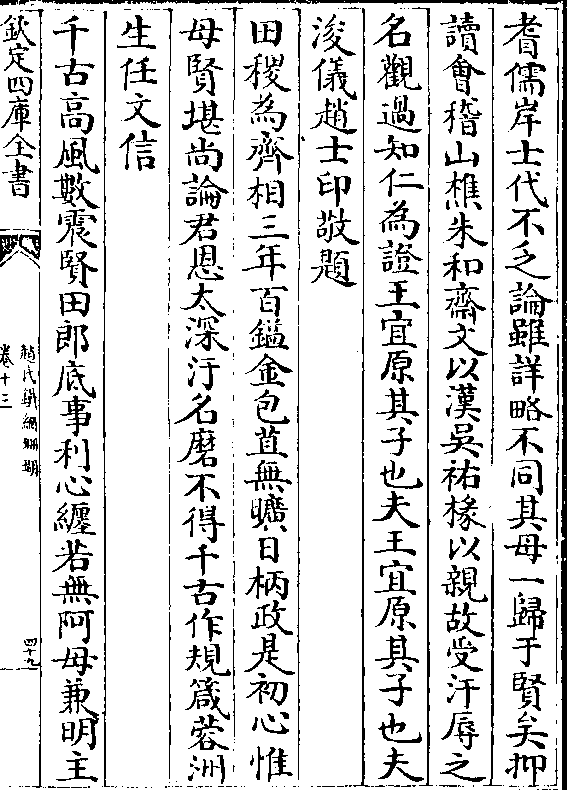 耆儒岸士代不乏論雖詳略不同其母一歸于賢矣抑
讀會稽山樵朱和齋文以漢吳祐椽以親故受汙辱之
名觀過知仁為證王宜原其子也夫王宜原其子也夫
浚儀趙士印敬題
田稷為齊相三年百鎰金包苴無曠日柄政是初心惟
母賢堪尚論君恩太深汙名磨不得千古作規箴蓉洲
生任文信
千古高風數震賢田郎底事利心纏若無阿母兼明主
欽定四庫全書
趙氏鐵網珊瑚
卷十三
四十九